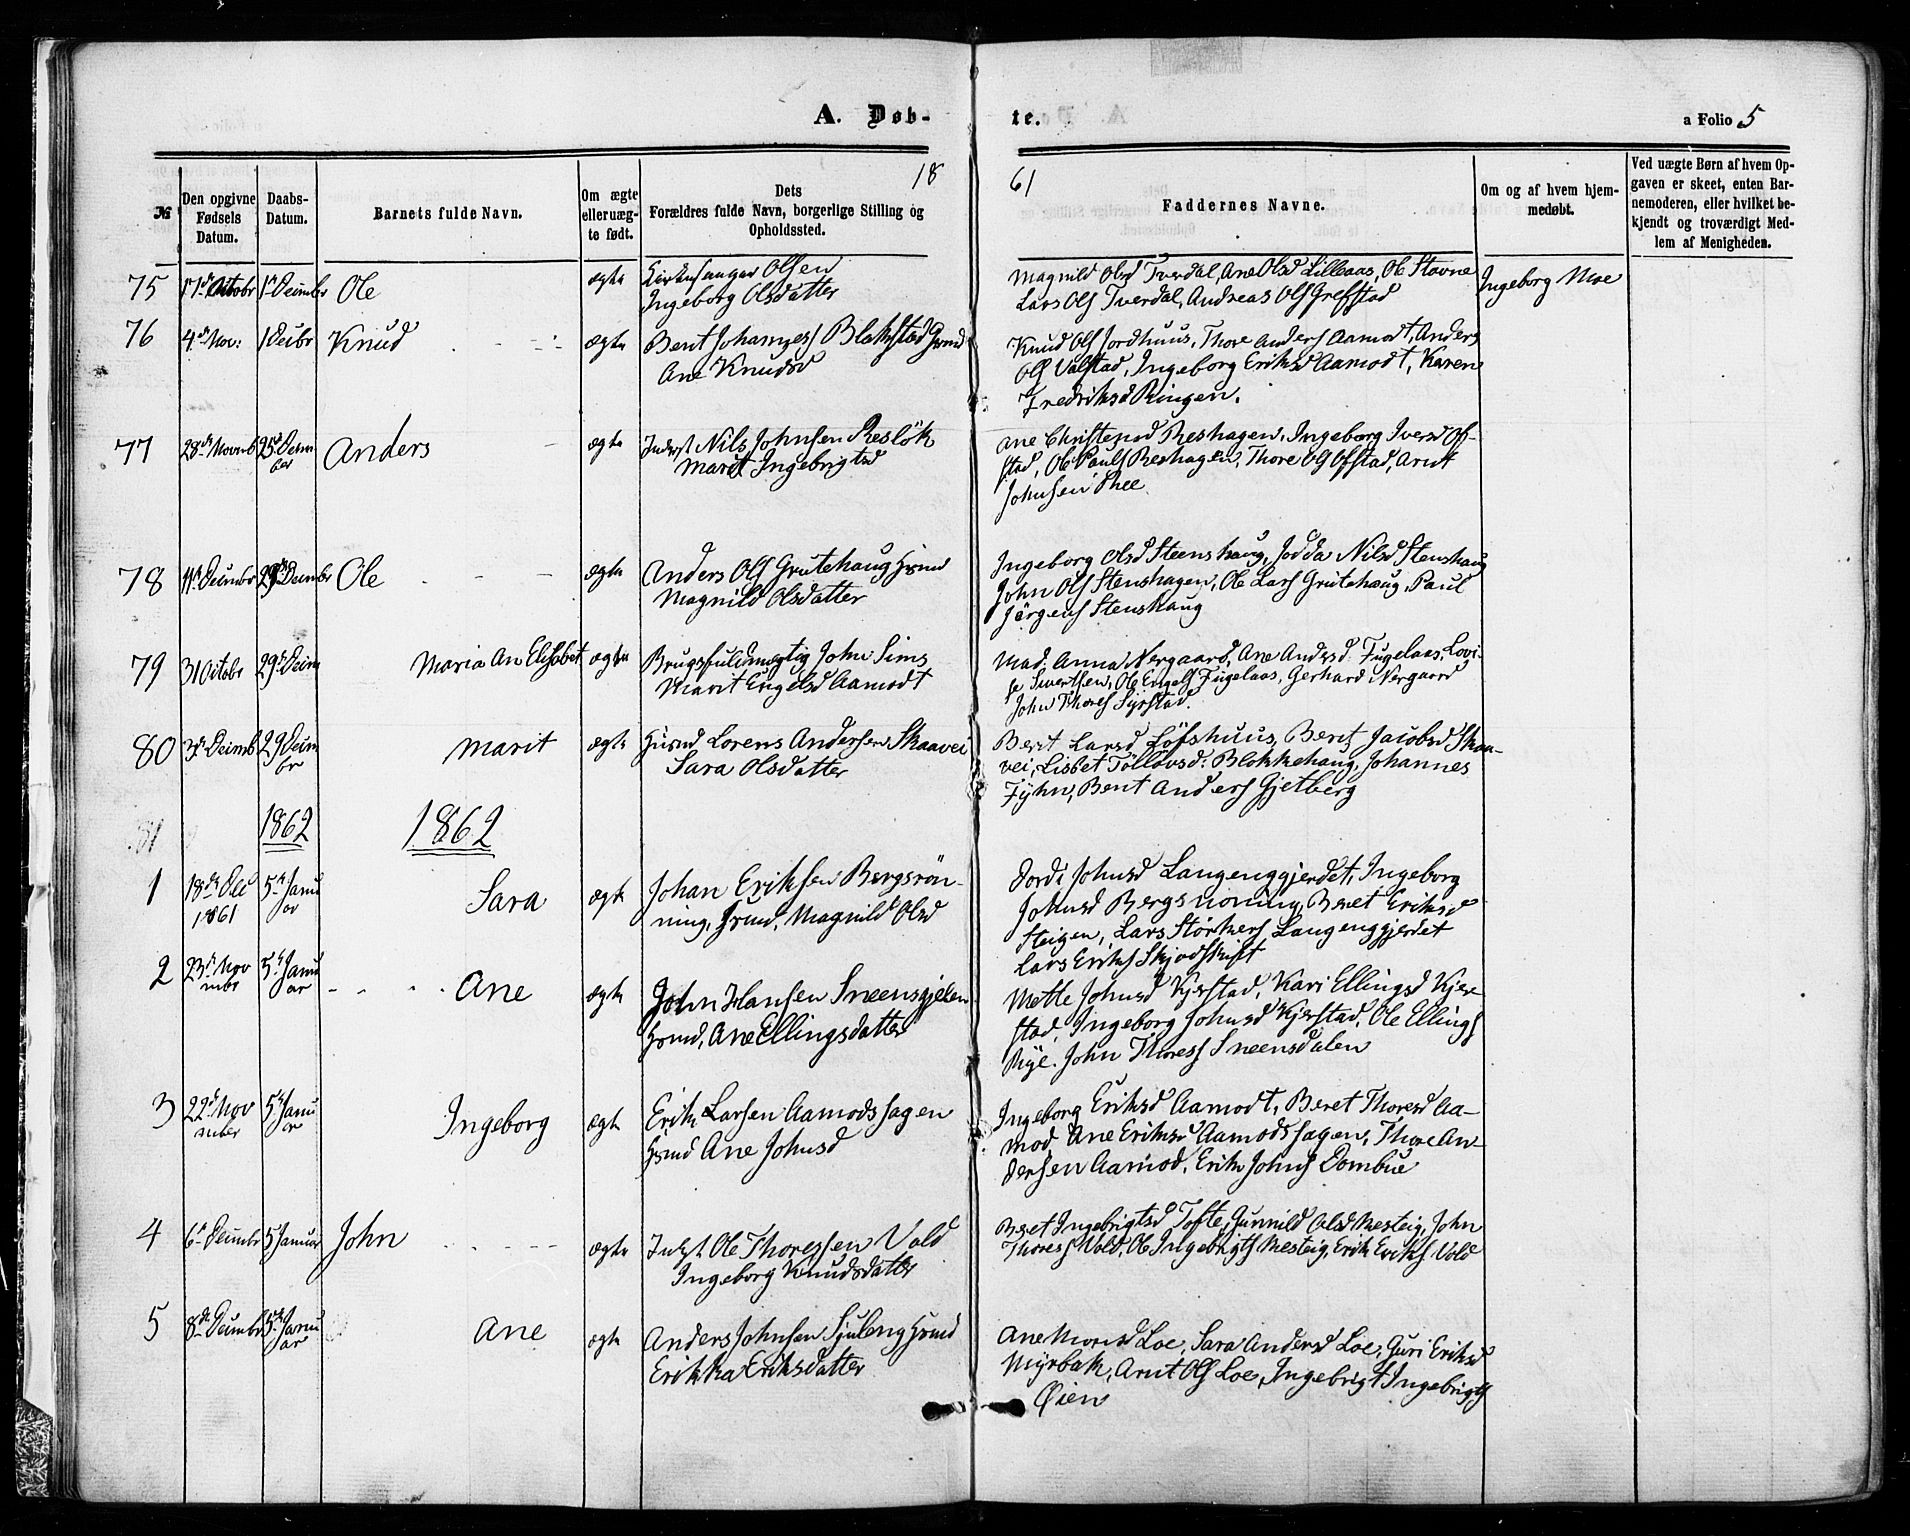 A. Døb-
te.
a Folio 5
18
61
№
Den opgivne Fødsels Datum.
Daabs-Datum.
Barnets fulde Navn.
Om ægte eller uæg-te født.
Dets Forældres fulde Navn, borgerlige Stilling og Opholdssted.
Faddernes Navne.
Om og af hvem hjem-medøbt.
Ved uægte Børn af hvem Op-gaven er skeet, enten Bar-nemoderen, eller hvilket be-kjendt og troværdigt Med-lem af Menigheden.
75 17d Octobr 1d Decimbr Ole ægte Kirkesanger Olsen
Ingeborg Olsdatter
Magnild Olsd Tverdal, Ane Olsd Lilleaas, Ole Stavne
Lars Ols Tverdal, Andreas Ols Grefstad
Ingeborg Moe
76 4d Nov: 1 Decbr Knud ægte Berit Johanness Blokstad Hsmd
Ane Knudsd
Knud Ols Jordhuus, Thore Anders Aamodt, Anders
Ols Valstad, Ingeborg Eriksd Aamodt, Karen
Fredriksd Ringen.
77 28de Novmb 25d Decm
ber Anders ægte Inderst Nils Johnsen Resløk
Marit Ingebrigtsd
Ane Christensd Reshagen, Ingeborg Iversd Of-
stad, Ole Pauls Reshagen, Thore Ols Ofstad, Arnt
Johnsen Rhee
78 11d Decimbr 29d Decimbr Ole ægte Anders Ols Grutehaug Hsmd
Magnild Olsdatter
Ingeborg Olsd Steenshaug, Jodda Nilsd Stenshaug
John Ols Stenshagen, Ole Lars Grutehaug, Paul
Jørgens Stenshaug
79 31 Octobr 29d Decim Maria An Elisabet ægte Brugsfuldmægtig John Sims
Marit Engelsd Aamodt
Mad. Anna Nergaard, Ane Andersd. Fugelaas, Lovi-
se Sivertsen, Ole Engels Fugelaas, Gerhard Nergaard
John Thores Syrstad.
80 3d Decimb 29 Decim
br Marit ægte Husmd Lorens Andersen Skaavei
Sara Olsdatter
Berit Larsd Løfshuus, Berit Jacobsd Skaa-
vei, Lisbet Tollovsd. Blokkehaug, Johannes
Fyhn, Berit Anders Gjetberg
81 1862 1862
1 18de Dec
1861 5te Janu
ar Sara ægte Johan Eriksen Bergsrøn-
ning, Hsmd, Magnild Olsd
Dordi Johnsd Langenggjerdet, Ingeborg
Johnsd Bergsrønning, Beret Eriksd
Steigen, Lars Størkers Langenggjerdet
Lars Eriks Skjodskift
2 23d Nov
mbr 5te Janu
ar Ane ægte John Hansen Sneensgjelen
Hsmd, Ane Ellingsdatter
Mette Johnsd Kjerstad, Kari Ellingsd Kjer-
stad, Ingeborg Johnsd Kjerstad, Ole Ellings
Rye. John Thoress Sneensdalen
3 22d Nov
mber 5te Janu
ar Ingeborg ægte Erik Larsen Aamodshagen
Hsmd Ane Johnsd
Ingeborg Eriksd Aamodt, Beret Thoresd Aa-
mod, Ane Eriksd Aamodshagen, Thore An-
dersen Aamod, Erik Johns Dombue
4 6te Decimbr 5 Januar John ægte Inderst. Ole Thoressen Vold
Ingeborg Knudsdatter
Beret Ingebrigtsd Tofte, Gunnild Olsd Mesteig, John
Thoress Vold, Ole Ingebrigts Mesteig, Erik Eriks Vold
5 8de Decimbr 5te Janu
ar Ane ægte Anders Johnsen Sjuleng Hsmd
Erikka Eriksdatter
Ane Monsd Loe, Sara Andersd Loe, Guri Eriksd
Myrbak, Arnt Ols Loe, Ingebrigt Ingebrigts
Øien